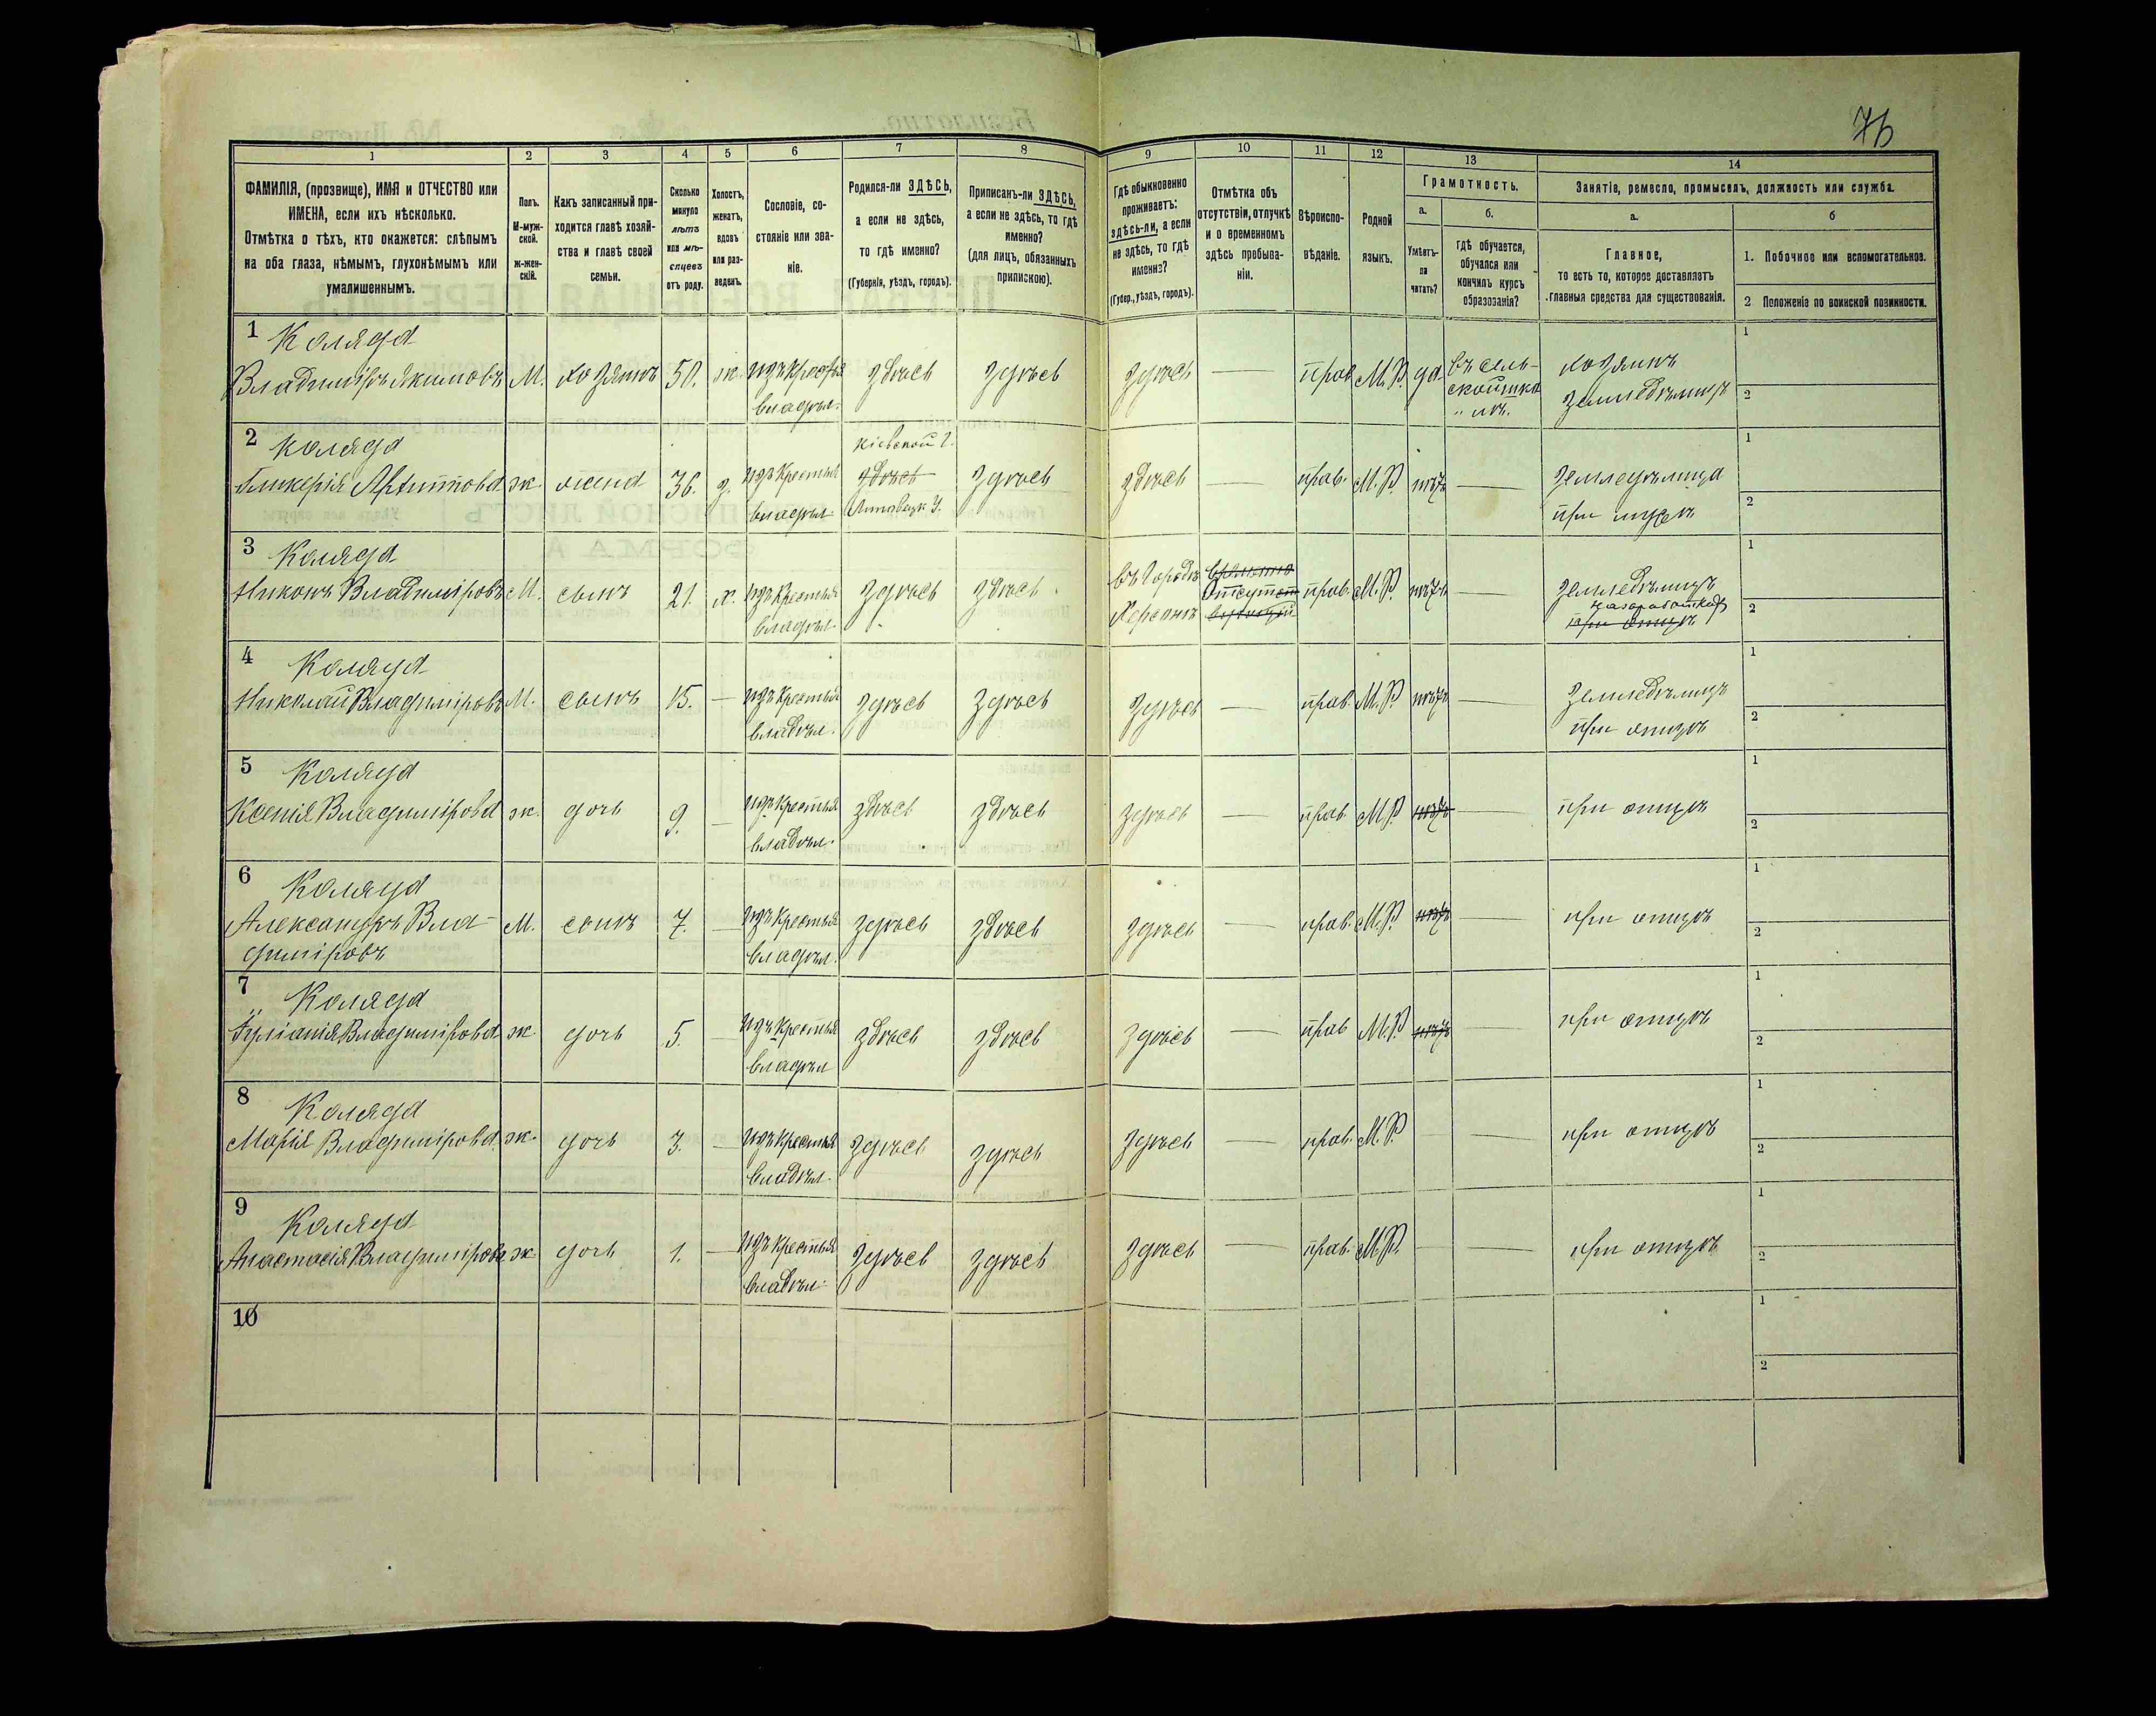 76
1 2 3 4 5 6 7 8 9 10 11 12 13 14
ФАМИЛІЯ, (прозвище), ИМЯ и ОТЧЕСТВО или
ИМЕНА, если ихъ нѣсколько.
Отмѣтка о тѣхъ, кто окажется: слѣпымъ
на оба глаза, нѣмымъ, глухонѣмымъ или
умалишеннымъ.
Полъ.
М-муж-
ской.
ж-жен-
скій.
Какъ записанный при-
ходится главѣ хозяй-
ства и главѣ своей
семьи.
Сколько
минуло
лѣтъ
или мѣ-
сяцевъ
отъ роду.
Холостъ,
женатъ,
вдовъ
или раз-
веденъ.
Сословіе, со-
стояніе или зва-
ніе.
Родился-ли ЗДѢСЬ,
а если не здѣсь,
то гдѣ именно?
(Губернія, уѣздъ, городъ).
Приписанъ-ли ЗДѢСЬ,
а если не здѣсь, то гдѣ
именно?
(для лицъ, обязанныхъ
припискою).
Гдѣ обыкновенно
проживаетъ:
здѣсь-ли, а если
не здѣсь, то гдѣ
именно?
(Губер., уѣздъ, городъ).
Отмѣтка объ
отсутствіи, отлучкѣ
и о временномъ
здѣсь пребыва-
ніи.
Вѣроиспо-
вѣданіе.
Родной
языкъ.
Грамотность.
а.
Умѣетъ-
ли
читать?
б.
гдѣ обучается,
обучался или
кончилъ курсъ
образованія?
Занятіе, ремесло, промыселъ, должность или служба.
а.
Главное,
то есть то, которое доставляетъ
главныя средства для существованія.
б
1. Побочное или вспомогательное.
2 Положеніе по воинской повинности.
1 Коляда
Владиміръ Якимовъ М. хозяинъ 50. ж. изъ Крестья владѣл. здѣсь здѣсь здѣсь — прав М.Р. да въ сель-
ской шко
" лѣ.
хозяинъ
земледѣлецъ
1
2
2 Коляда
Гликерія Ж. жена 36. з. изъ Крестья владѣл. Кіевской г.
здѣсь
Липовецк У.
здѣсь здѣсь — прав. М.Р. нѣтъ —
земледѣлица
при мужѣ
1
2
3 Коляда
Никонъ Владиміровъ М. сынъ 21. х. изъ Крестья владѣл. здѣсь здѣсь въ Городѣ
Херсонѣ
временно
Отсутст
вующій
прав. М.Р. нѣтъ —
земледѣлецъ
на заработкахъ
при отцѣ
1
2
4 Коляда
Николай Владиміровъ М. сынъ 15. — изъ Крестья владѣл. здѣсь здѣсь здѣсь — прав. М.Р. нѣтъ —
земледѣлецъ
при отцѣ
1
2
5 Коляда
Ксенія Владимірова ж. дочь 9. — изъ Крестья владѣл. здѣсь здѣсь здѣсь — прав. М.Р. нѣтъ — при отцѣ
1
2
6 Коляда
Александръ Вла-
диміровъ
М. сынъ 7. — изъ Крестья владѣл. здѣсь здѣсь здѣсь — прав. М.Р. нѣтъ — при отцѣ
1
2
7 Коляда
Іуліанія Владимірова ж дочь 5. — изъ Крестья владѣл здѣсь здѣсь здѣсь — прав М.Р. нѣтъ — при отцѣ
1
2
8 Коляда
Марія Владимірова ж. дочь 3. — изъ Крестья владѣл. здѣсь здѣсь здѣсь — прав. М.Р. — — при отцѣ
1
2
9 Коляда
Анастасія Владимірова ж дочь 1. — изъ Крестья владѣл. здѣсь здѣсь здѣсь — прав. М.Р. — — при отцѣ
1
2
10
1
2